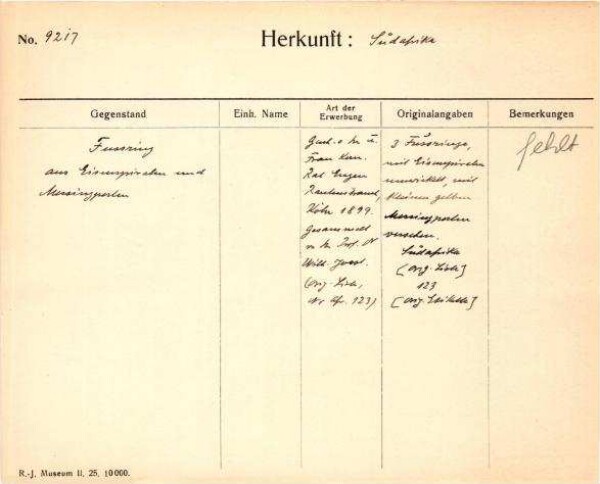 No. 9217
Herkunft: Südafrika
Gegenstand
Einh. Name
Art der Erwerbung
Originalangaben
Bemerkungen
Fussring
aus Eisenspiralen und
Messingperlen
Gesch. v. Hr. u.
Frau Kom.
Rat Eugen
Rautenstrauch,
Köln 1899.
Gesammelt
v. Hr. Prof. Dr
Wilh. Joest.
(Orig. Liste,
Nr. Afr. 123)
3 Fussringe,
mit Eisenspiralen
umwickelt, mit
kleinen gelben
Messingperlen
versehen.
Südafrika
[Orig. Liste]
123
[Orig. Etikette]
fehlt
R.-J. Museum II. 25. 10000.